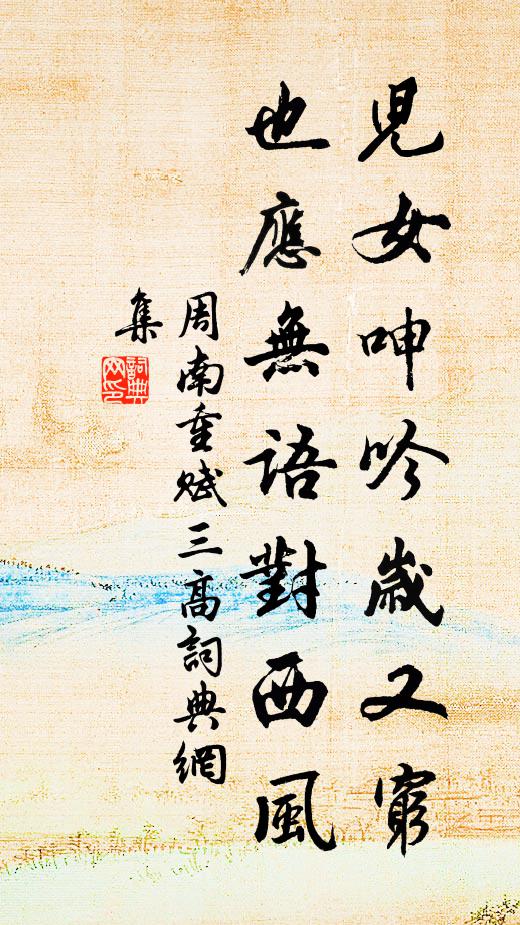 兒女呻吟歲又窮
也應無語對西風
周南重賦三高詞典網
集
詞典網印